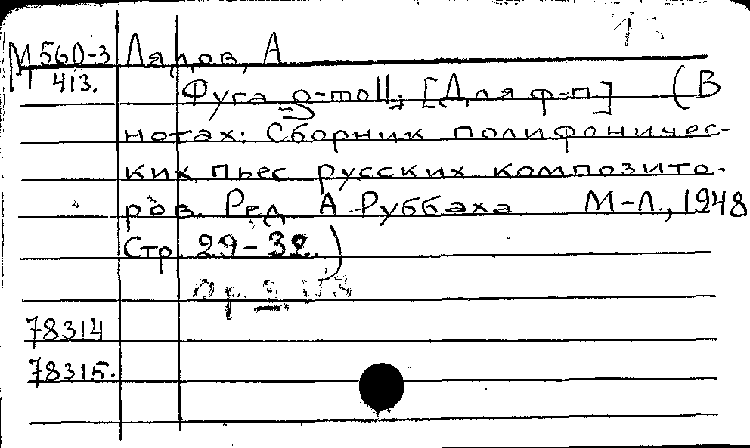 М 560-3 Ляпов, А
413.
Фуга g-moll; [Для ф-п] (В
нотах: Сборник полифоничес-
ких пьес русских композито-
ров. Ред. А Руббаха М-Л., 1948
Стр. 29-32.)
78314
78315.